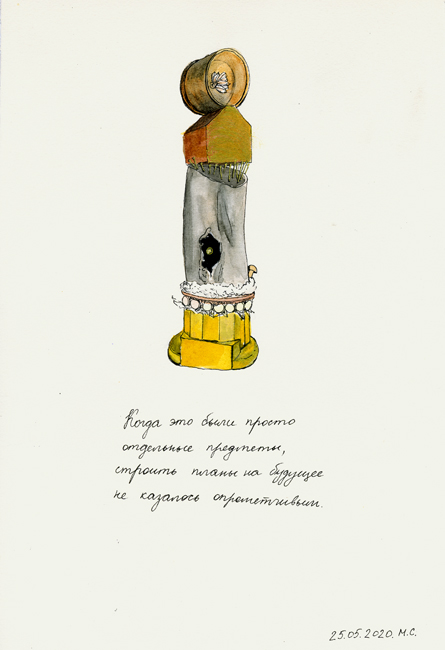 Когда это были просто
отдельные предметы,
строить планы на будущее
не казалось опрометчивым.
25.05.2020. М.С.